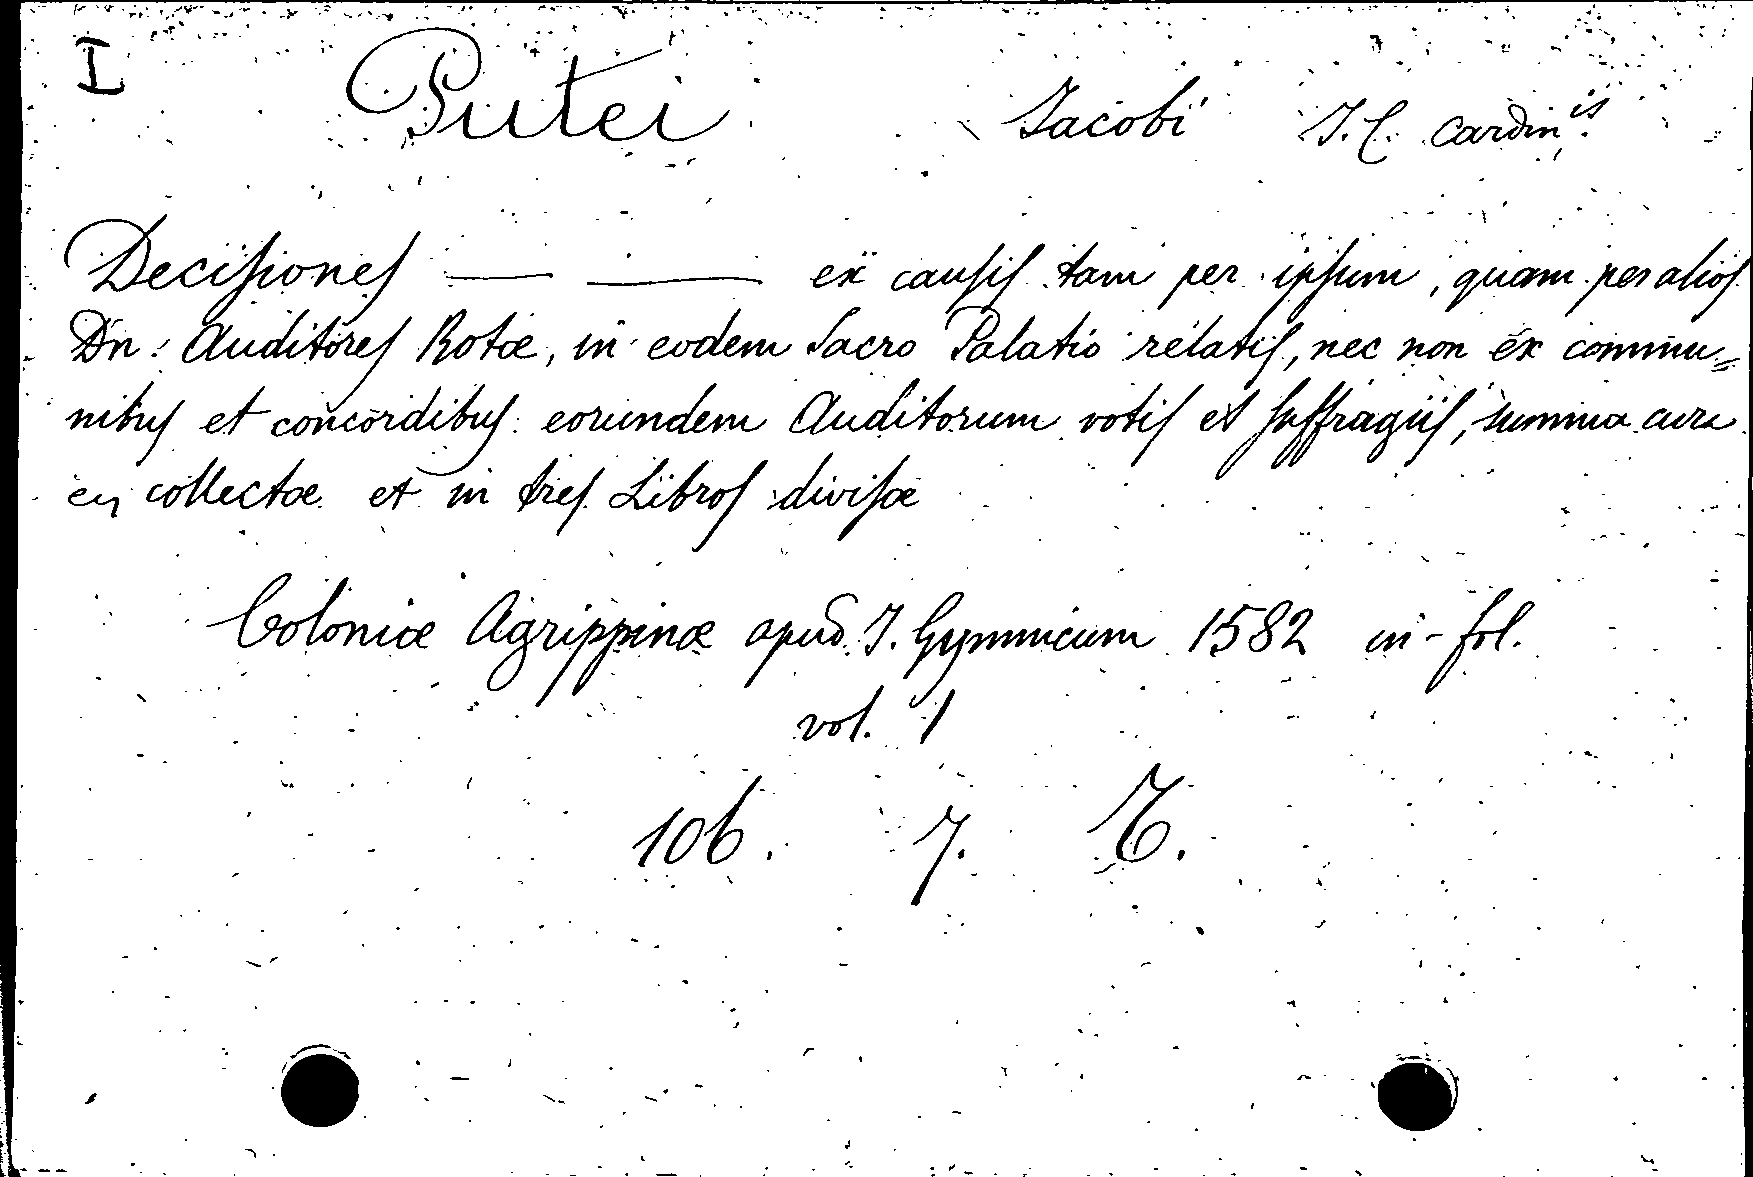 I
Putei Jacobi J. C. Cardin.is
Decisiones — — ex causis tam per ipsum, quam per alios
Dn: Auditores Rotæ, in eodem Sacro Palatio relatis, nec non ex commu=
nibus et concordibus eorundem Auditorum votis et suffragiis, summa cura
collectæ et in tres Libros divisæ
Coloniæ Agrippinæ apud J. Gymnicum 1582 in-fol.
vol. 1
106. 7.